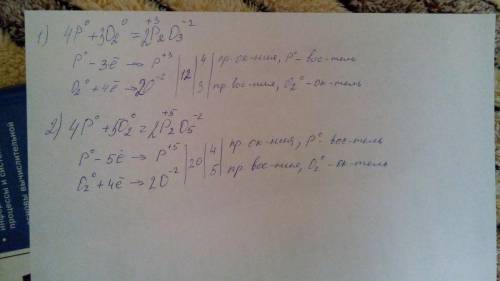 1) 4P⁰ + 3O₂⁰ = 2P₂⁺³O₃⁻²
P⁰ - 3ē → P⁺³ | 12 | 4 | пр. ок-ния, P⁰ - вос-тель
O₂⁰ + 4ē → 2O⁻² | 3 | пр. вос-ния, O₂⁰ - ок-тель
2) 4P⁰ + 5O₂⁰ = 2P₂⁺⁵O₅⁻²
P⁰ - 5ē → P⁺⁵ | 20 | 4 | пр. ок-ния, P⁰ - вос-тель
O₂⁰ + 4ē → 2O⁻² | 5 | пр. вос-ния, O₂⁰ - ок-тель
процессы и систем
основы вычислительной